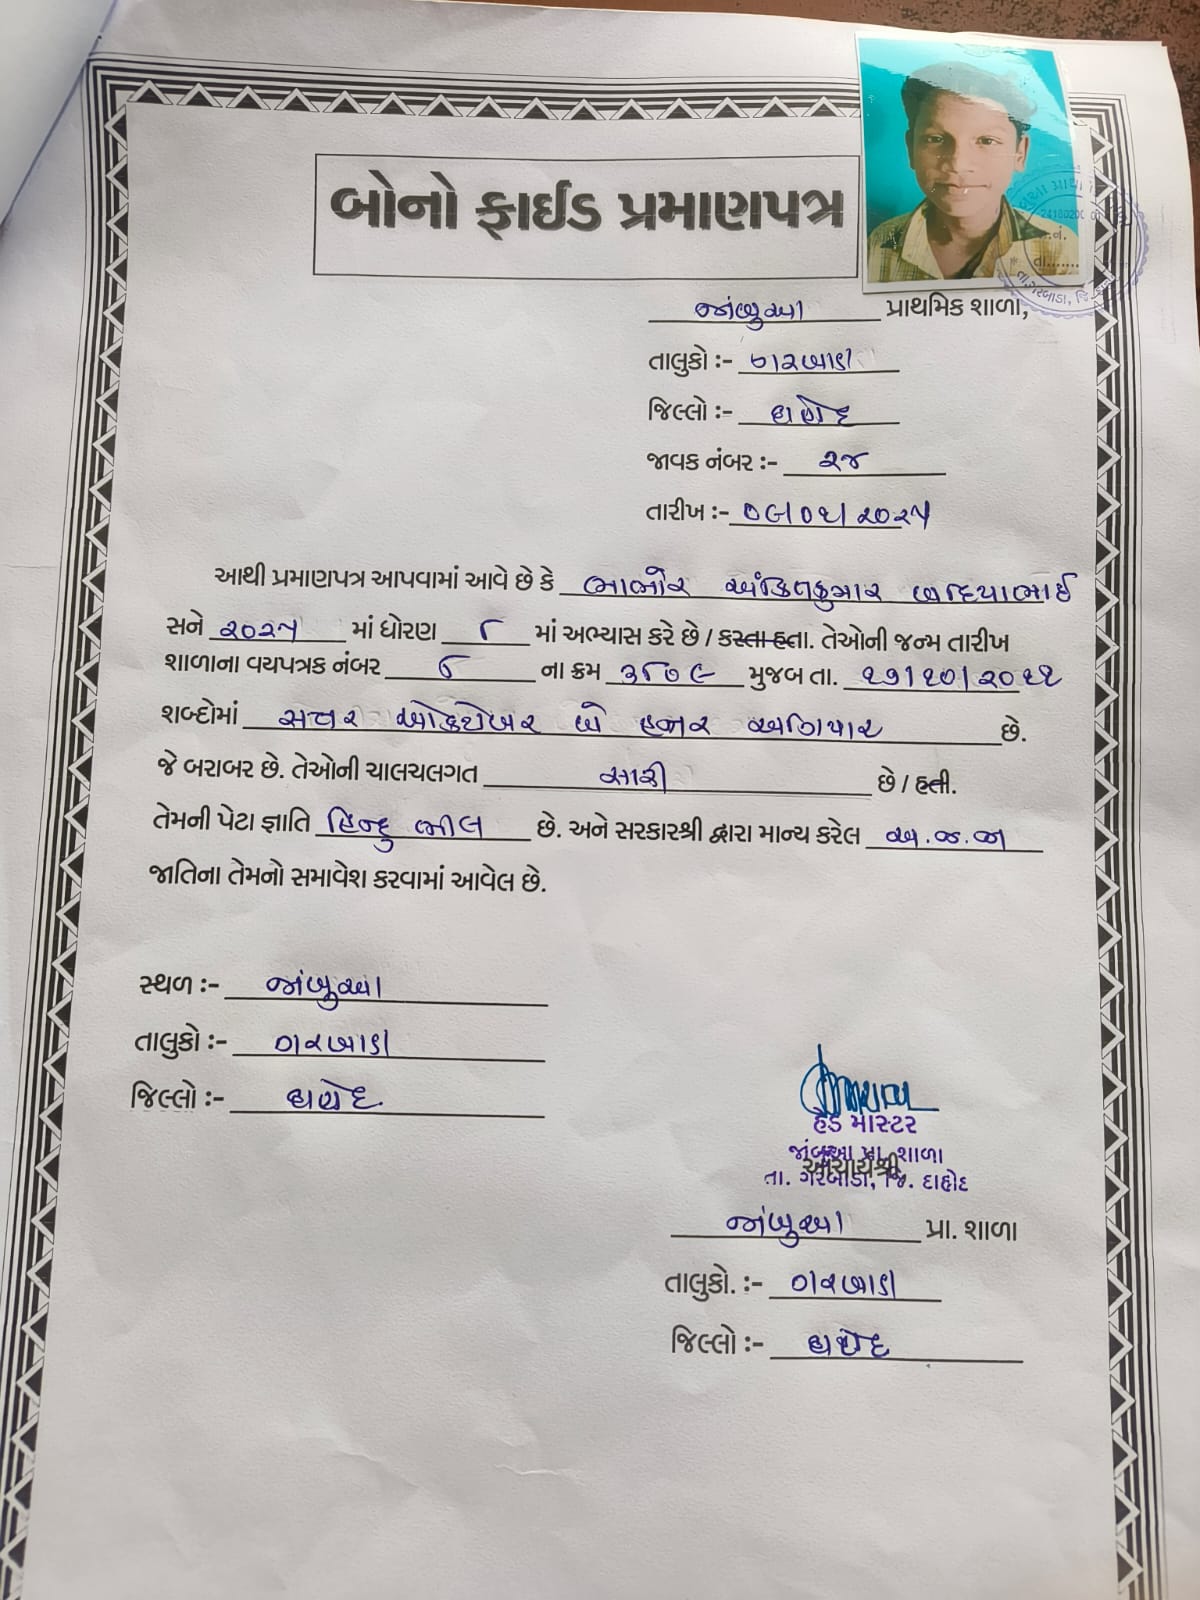 બોનો ફાઈડ પ્રમાણપત્ર
જાંબુઆ પ્રાથમિક શાળા,
તાલુકો :- ગરબાડા
જિલ્લો :- દાહોદ
જાવક નંબર :- ૨૪
તારીખ :- ૦૯/૦૧/૨૦૨૫
આથી પ્રમાણપત્ર આપવામાં આવે છે કે ભાભોર અંકિતકુમાર બદિયાભાઈ
સને ૨૦૨૫ માં ધોરણ ૮ માં અભ્યાસ કરે છે / કરતા હતા. તેઓની જન્મ તારીખ
શાળાના વયપત્રક નંબર ૬ ના ક્રમ ૩૮૭૯ મુજબ તા. ૧૭/૧૦/૨૦૧૧
શબ્દોમાં સત્તર ઓક્ટોબર બે હજાર અગિયાર છે.
જે બરાબર છે. તેઓની ચાલચલગત સારી છે / હતી.
તેમની પેટા જ્ઞાતિ હિન્દુ ભીલ છે. અને સરકારશ્રી દ્વારા માન્ય કરેલ અ.જ.જા
જાતિના તેમનો સમાવેશ કરવામાં આવેલ છે.
સ્થળ :- જાંબુઆ
તાલુકો :- ગરબાડા
જિલ્લો :- દાહોદ
હેડ માસ્ટર
જાંબુઆ પ્રા. શાળા
આચાર્યશ્રી,
તા. ગરબાડા, જિ. દાહોદ
જાંબુઆ પ્રા. શાળા
તાલુકો. :- ગરબાડા
જિલ્લો :- દાહોદ